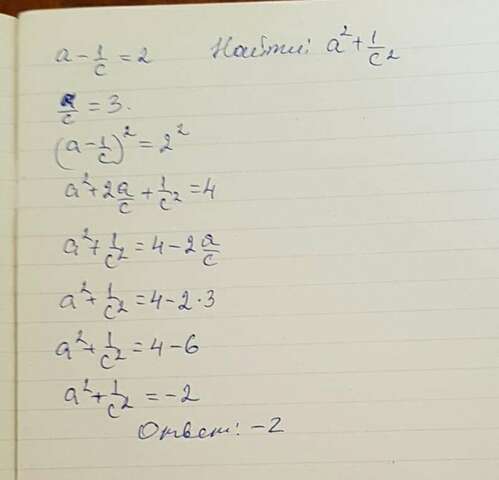 a - 1/c = 2 Найти: a² + 1/c²
a/c = 3.
(a - 1/c)² = 2²
a² + 2a/c + 1/c² = 4
a² + 1/c² = 4 - 2a/c
a² + 1/c² = 4 - 2·3
a² + 1/c² = 4 - 6
a² + 1/c² = -2
Ответ: -2